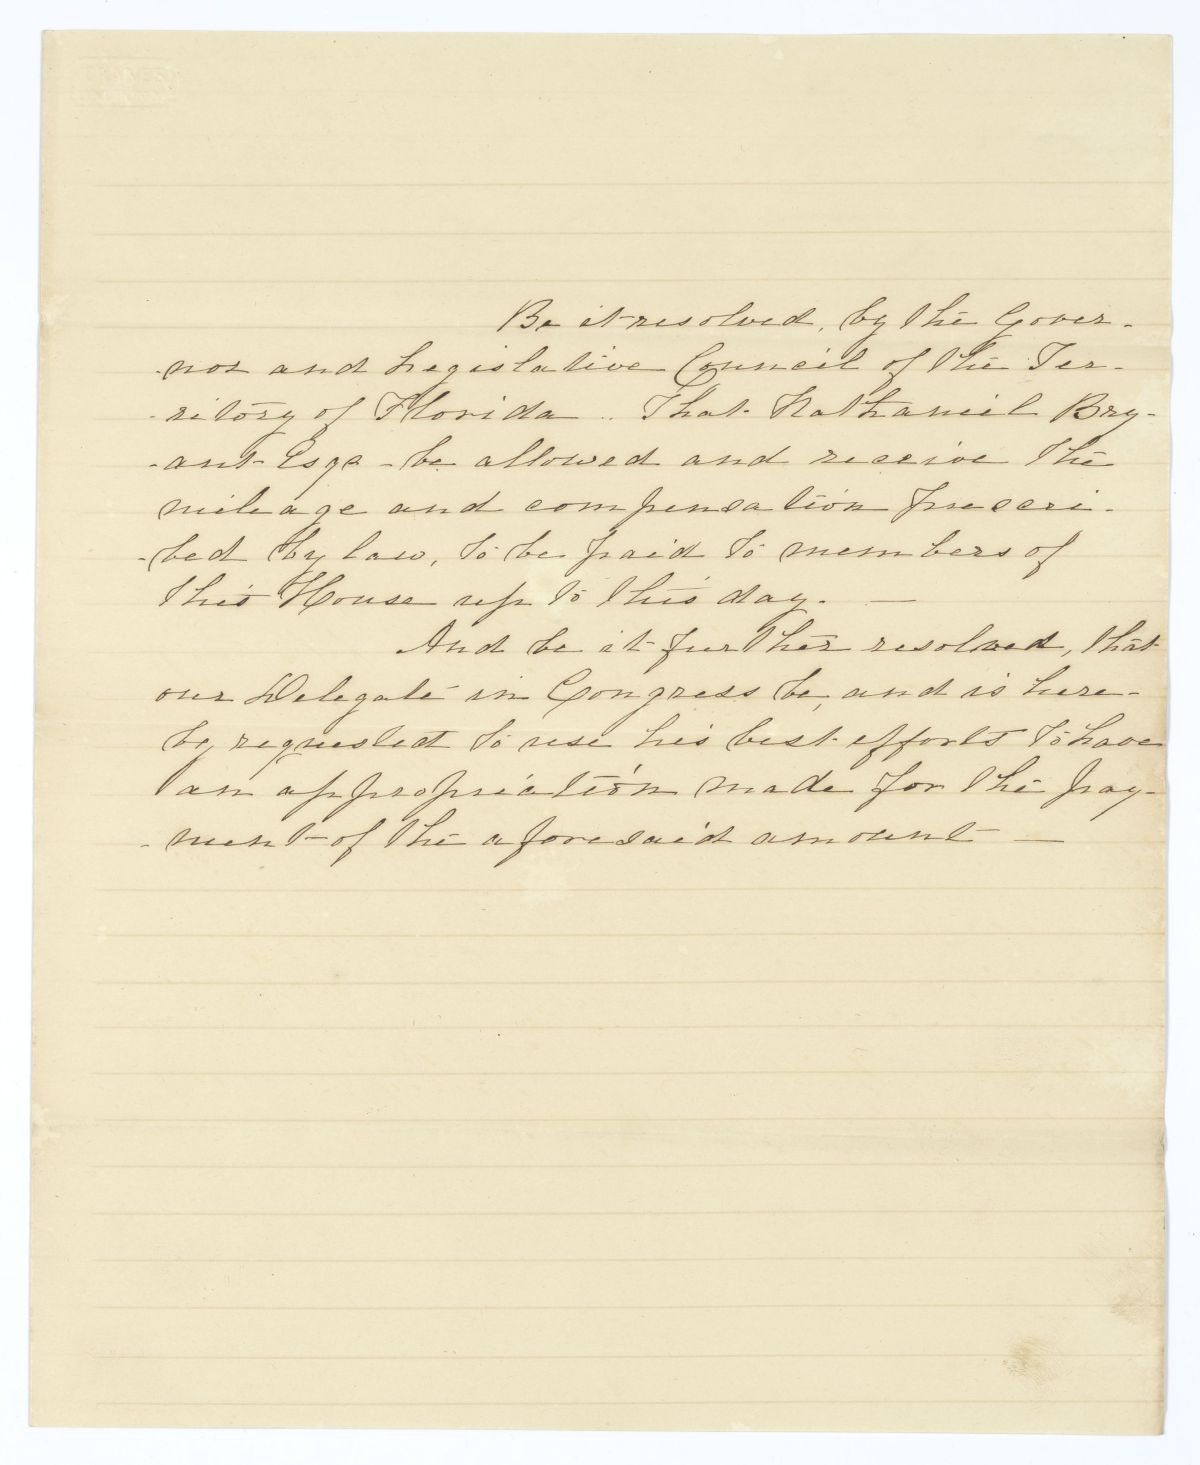 Be it resolved, by the Gover-
-nor and Legislative Council of the Ter-
-ritory of Florida. That Nathaniel Bry-
-ant Esqr - be allowed and receive the
mileage and compensation prescri-
-bed by law, to be paid to members of
this House up to this day. —
And be it further resolved, that
our Delegate in Congress be, and is here-
by requested to use his best efforts to have
an appropriation made for the pay-
-ment of the aforesaid amount —